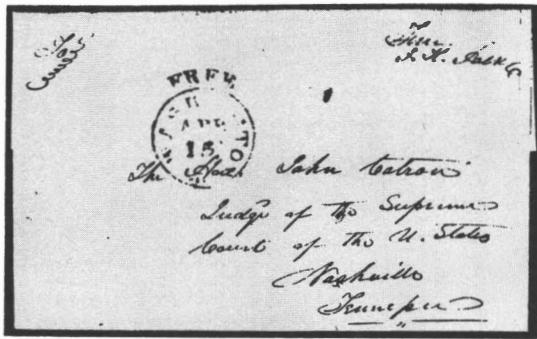 Free
J. K. Polk
FREE
WASH TO
APR
15
The Hon John Catron
Judge of the Supreme
Court of the U. States
Nashville
Tennessee